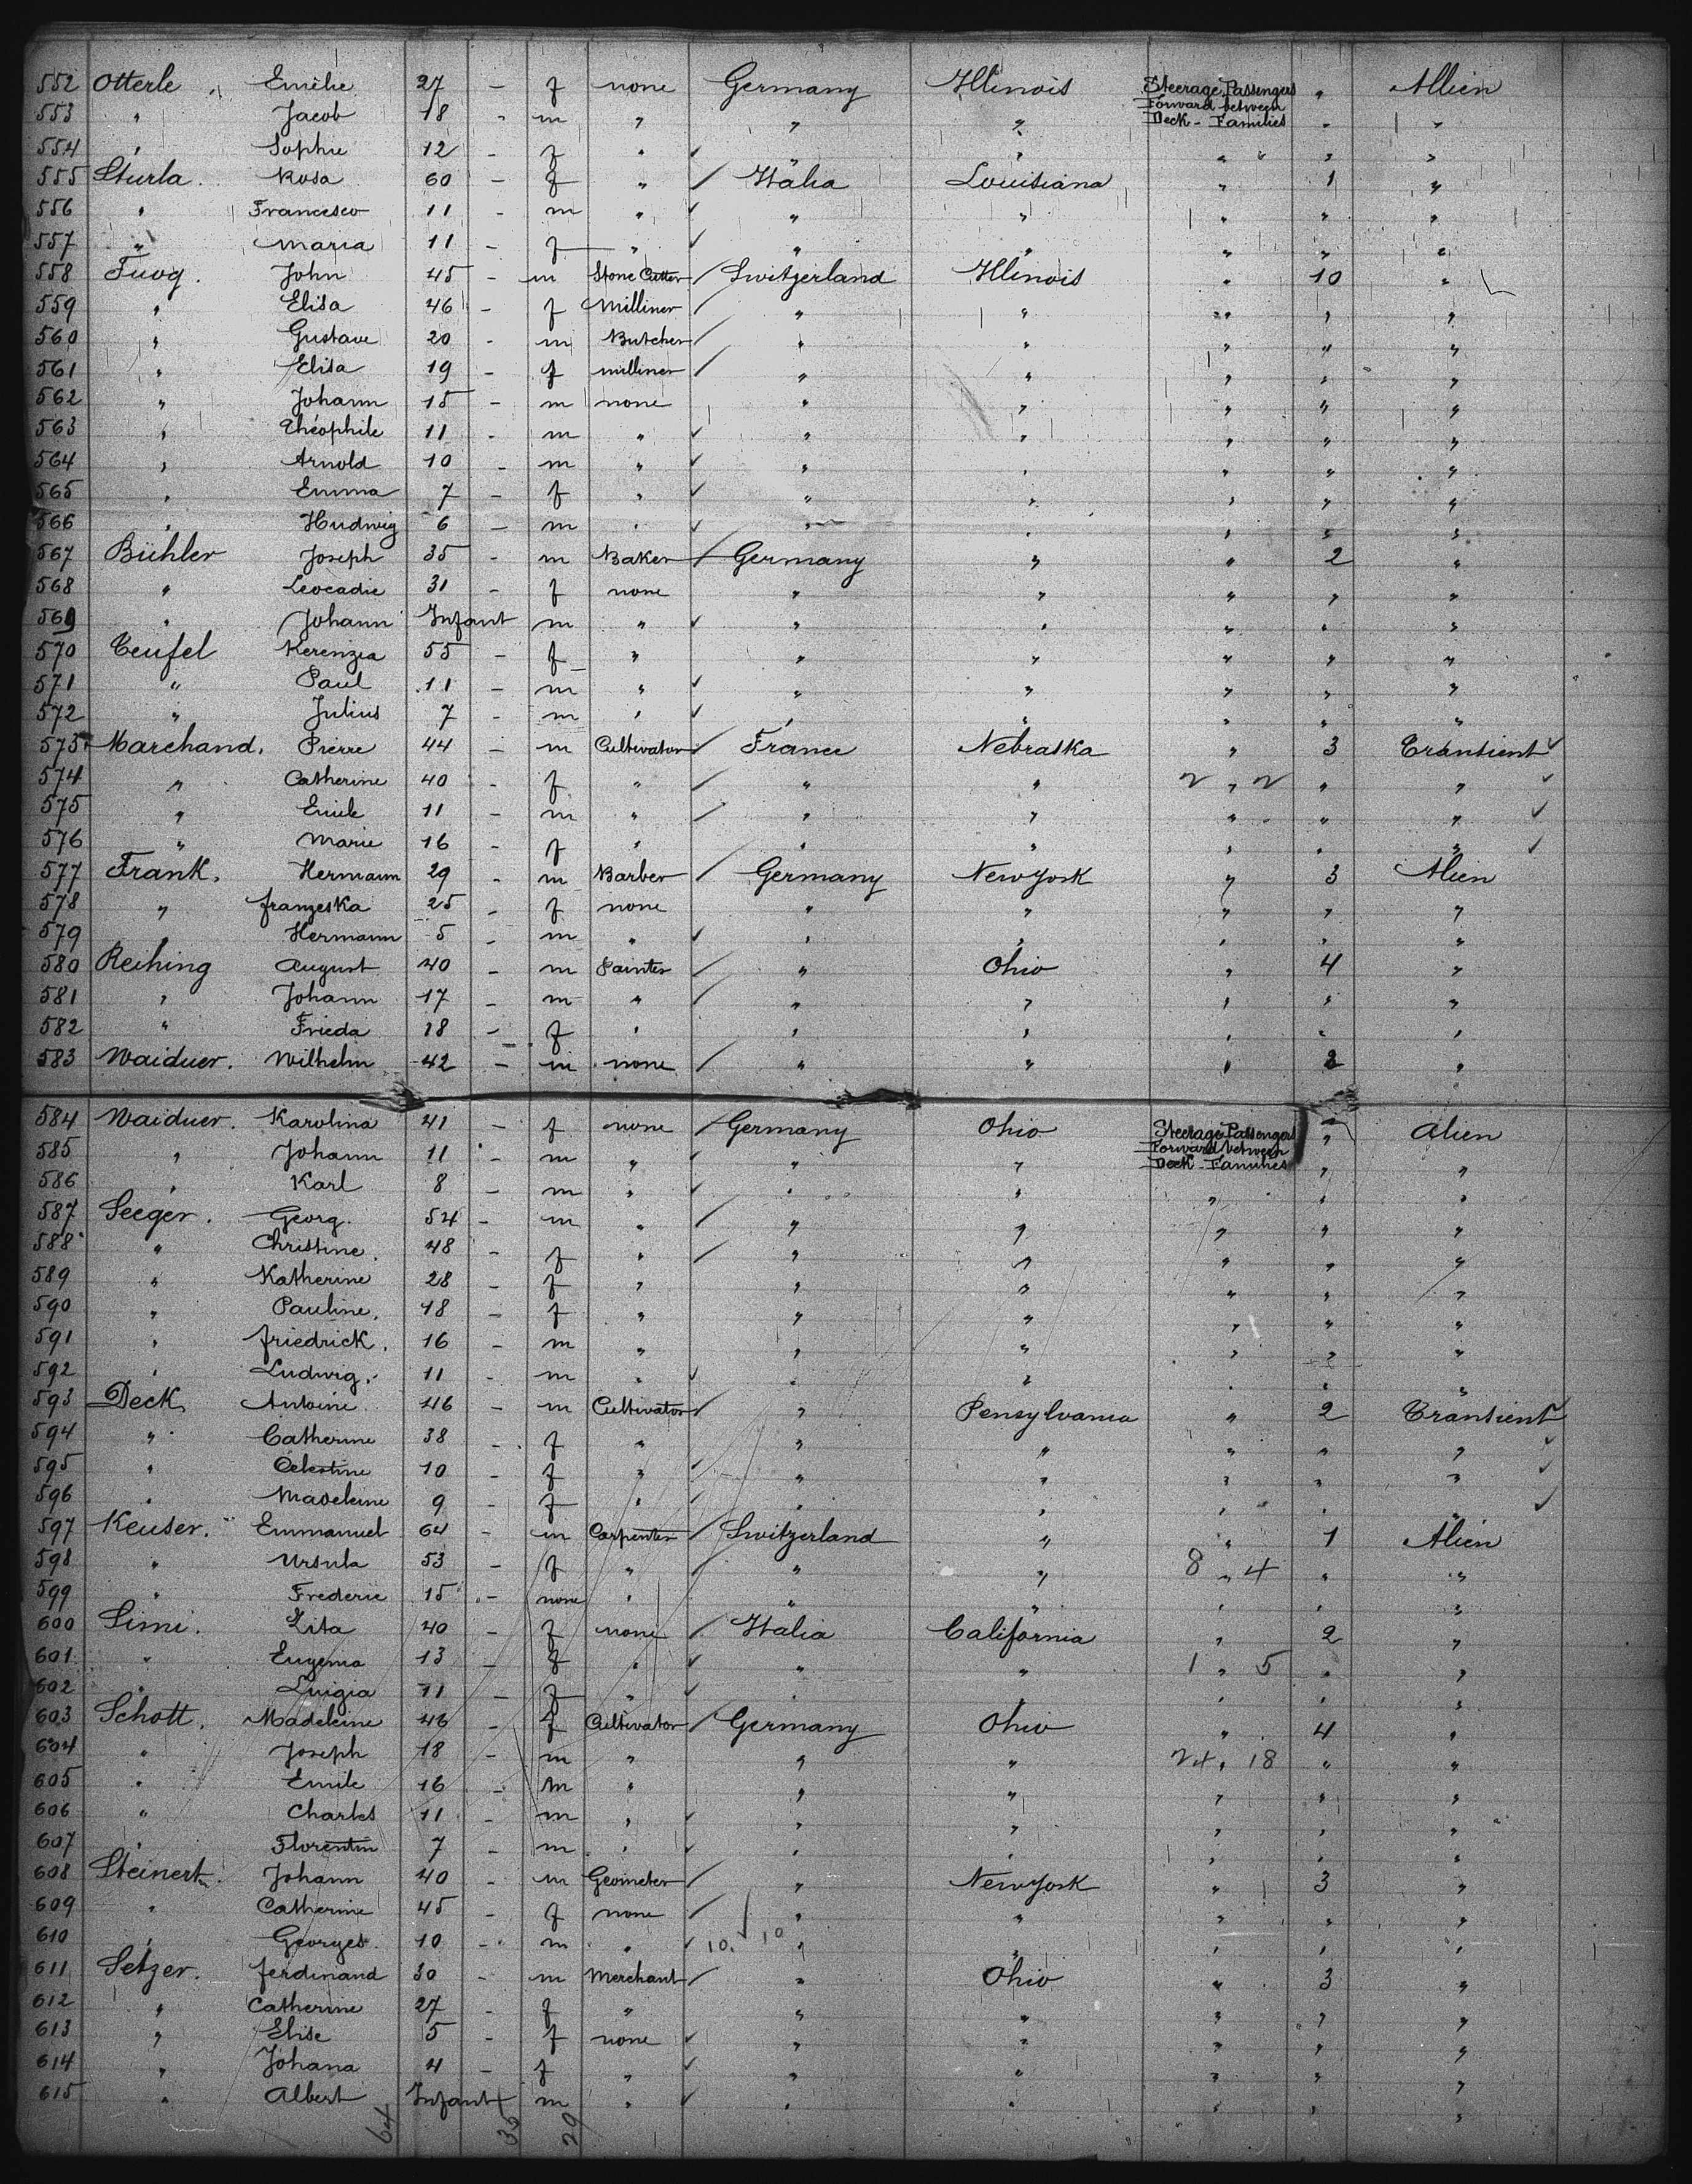 552 Otterle Emélie 27 - f none Germany Illinois Steerage Passengers Forward between Deck - Families " Allien
553 " Jacob 18 - m " " " " "
554 " Sophie 12 - f " " " " " "
555 Sturla. Rosa 60 - f " Italia Louisiana " 1 "
556 " Francesco 11 - m " " " " " "
557 " Maria 11 - f " " " " " "
558 Fuog. John 45 - m Stone Cutter Switzerland Illinois " 10 "
559 " Elisa 46 - f Milliner " " " " "
560 " Gustave 20 - m Butcher " " " " "
561 " Elisa 19 - f milliner " " " " "
562 " Johann 15 - m none " " " " "
563 " Théophile 11 - m " " " " " "
564 " Arnold 10 - m " " " " " "
565 " Emma 7 - f " " " " " "
566 " Hudwig 6 - m " " " " " "
567 Bühler Joseph 35 - m Baker Germany " " 2 "
568 " Leocadie 31 - f none " " " " "
569 " Johann Infant m " " " " " "
570 Teufel Kerenzia 55 - f " " " " " "
571 " Paul 11 - m " " " " " "
572 " Julius 7 - m " " " " " "
573 Marchand. Pierre 44 - m Cultivator France Nebraska " 3 Transient
574 " Catherine 40 - f " " " 2 " 2 " "
575 " Emile 11 - m " " " " " "
576 " Marie 16 - f " " " " " "
577 Frank. Hermann 29 - m Barber Germany New York " 3 Alien
578 " franzeska 25 - f none " " " " "
579 " Hermann 5 - m " " " " " "
580 Reihing August 40 - m Painter " Ohio " 4 "
581 " Johann 17 - m " " " " " "
582 " Frieda 18 - f " " " " " "
583 Waiduer. Wilhelm 42 - m none " " " 2 "
584 Waiduer. Karolina 41 - f none Germany Ohio Steerage Passengers Forward between Deck - Families " Alien
585 " Johann 11 - m " " " " "
586 " Karl 8 - m " " " " " "
587 Seeger. Georg. 54 - m " " " " " "
588 " Christine. 48 - f " " " " " "
589 " Katherine 28 - f " " " " " "
590 " Pauline. 18 - f " " " " " "
591 " friedrick. 16 - m " " " " " "
592 " Ludwig. 11 - m " " " " " "
593 Deck Antoine. 46 - m Cultivator " Pensylvania " 2 Transient
594 " Catherine 38 - f " " " " " "
595 " Celestine 10 - f " " " " " "
596 " Madeleine 9 - f " " " " " "
597 Keuser. Emmanuel 64 - m Carpenter Switzerland " " 1 Alien
598 " Ursula 53 - f " " " 8 " 4 " "
599 " Frederic 15 - none " " " " " "
600 Simi. Zita 40 - f none Italia California " 2 "
601 " Eugenia 13 - f " " " 1 " 5 " "
602 " Luigia 11 - f " " " " " "
603 Schott. Madeleine 46 - f Cultivator Germany Ohio " 4 "
604 " Joseph 18 - m " " " 24 " 18 " "
605 " Emile 16 - m " " " " " "
606 " Charles 11 - m " " " " " "
607 " Florentin 7 - m " " " " " "
608 Steinert. Johann 40 - m Geometer " New York " 3 "
609 " Catherine 45 - f none " " " " "
610 " Georges. 10 - m " 10. 10 " " " " "
611 Setzer. ferdinand 30 - m Merchant " Ohio " 3 "
612 " Catherine 27 - f " " " " " "
613 " Elise 5 - f none " " " " "
614 " Johana 4 - f " " " " " "
615 " Albert Infant m " " " " " "
64 35 29